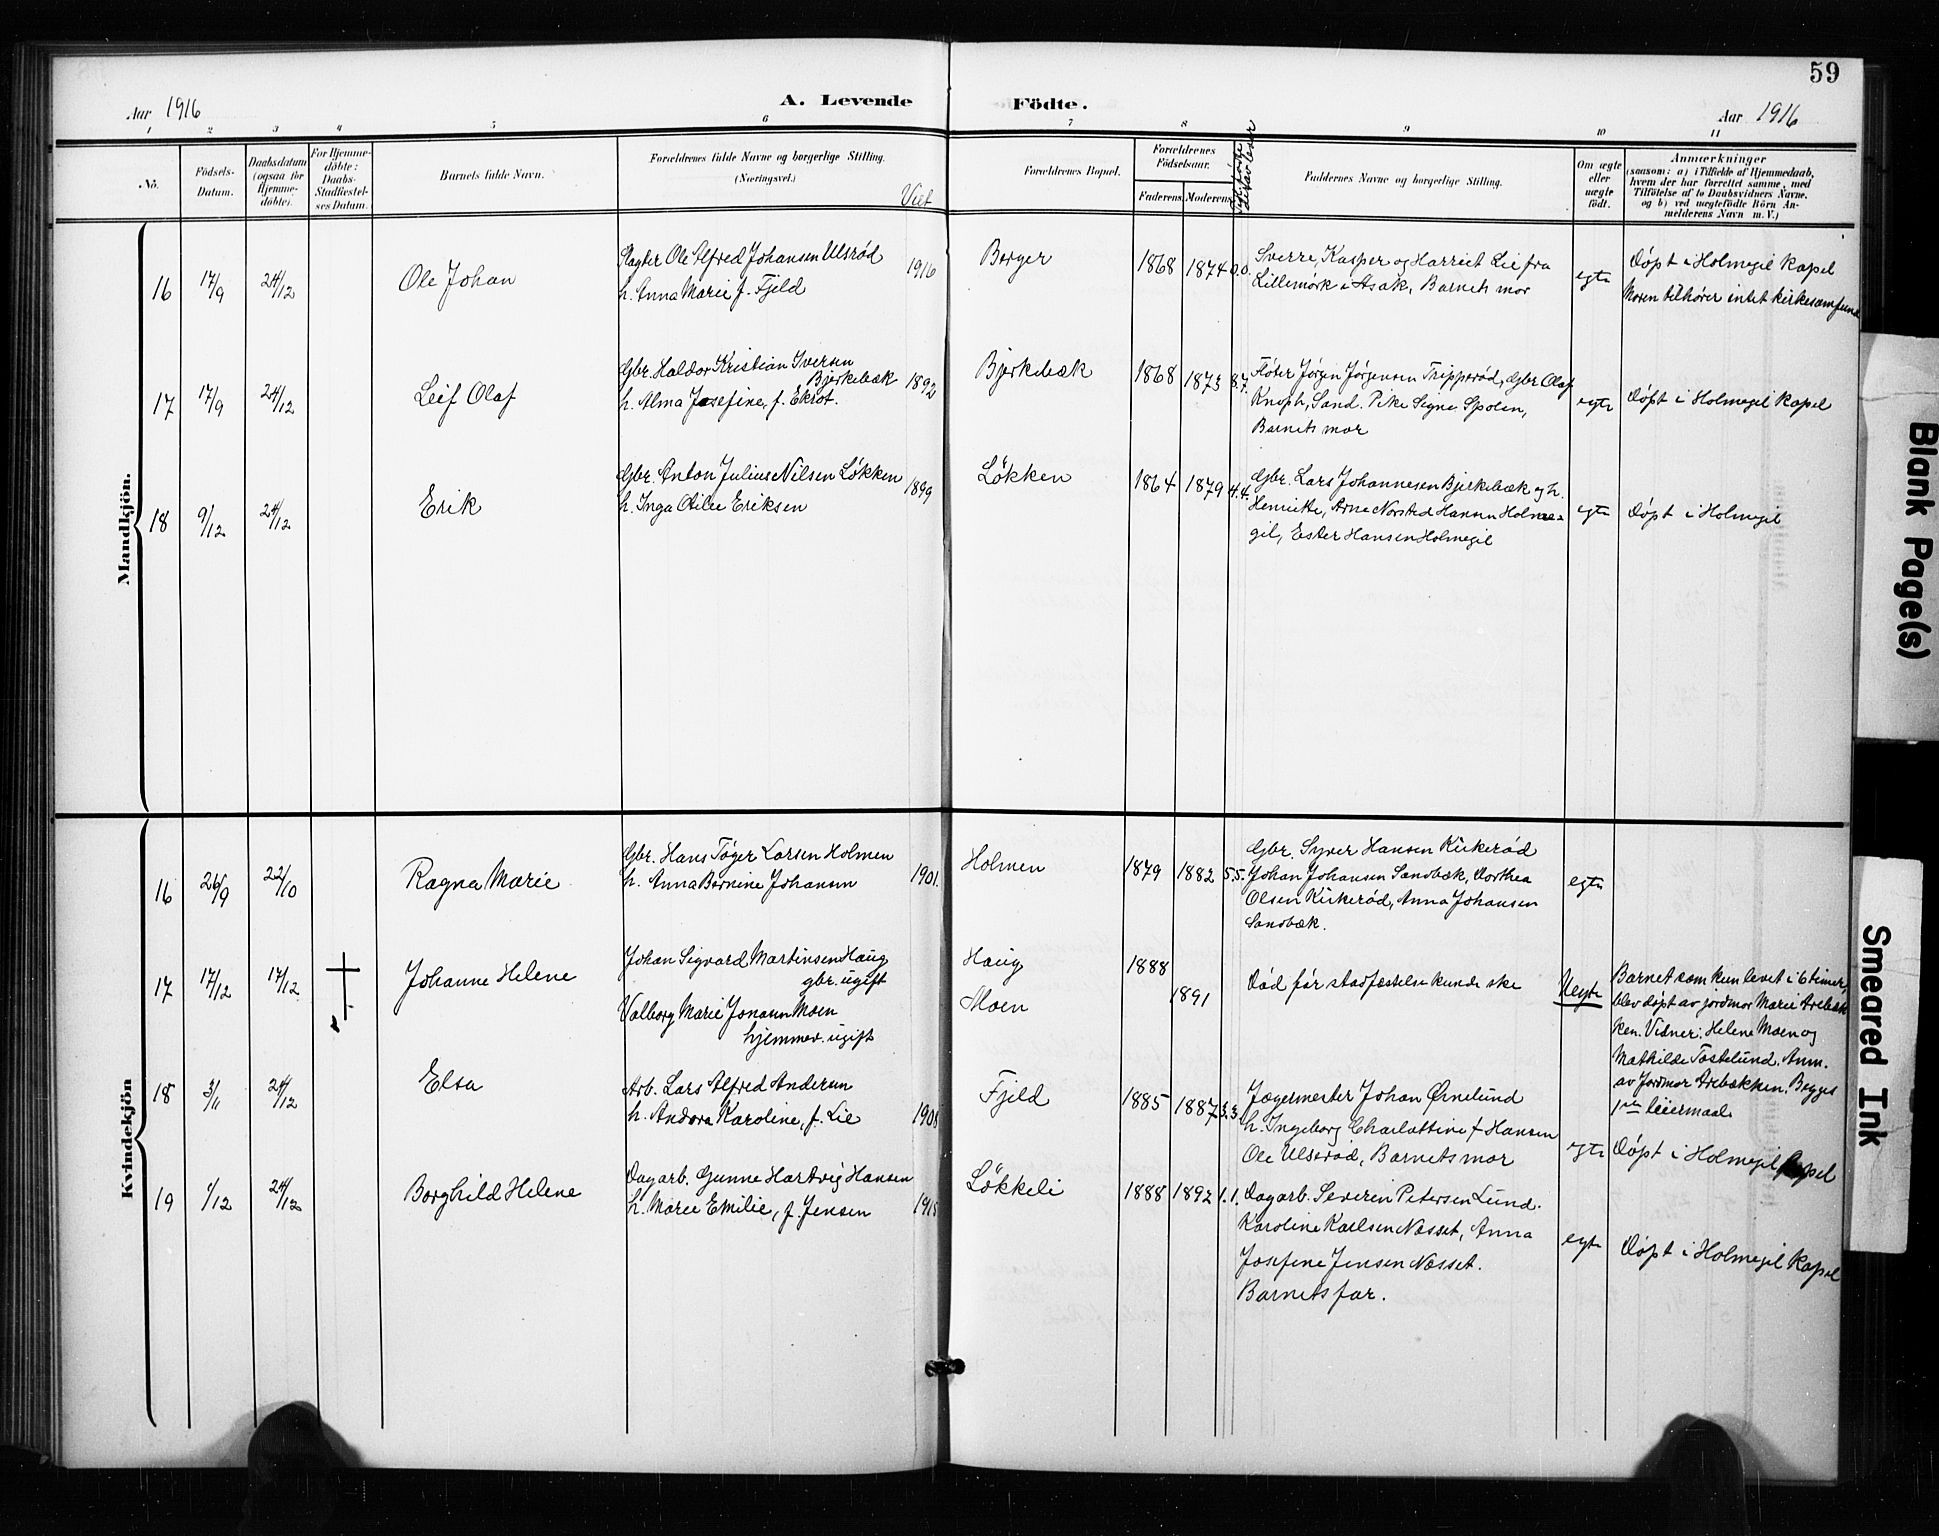 59
Aar 1916
A. Levende Födte.
Aar 1916
1 2 3 4 5 6 7 8 9 10 11
No.
Födsels-Datum.
Daabsdatum (ogsaa for Hjemme-döbte).
For Hjemme-döbte: Daabs-Stadfæstel-ses Datum.
Barnets fulde Navn.
Forældrenes fulde Navne og borgerlige Stilling.
(Næringsvei.)
Viet
Forældrenes Bopæl.
Forældrenes Födselsaar.
Faderens Moderens
Faddernes Navne og borgerlige Stilling.
Om ægte eller uægte födt.
Anmærkninger
(saasom: a) i Tilfælde af Hjemmedaab,
hvem der har forrettet samme, med
Tilföielse af to Daabsvidners Navne,
og b) ved uægtefödte Börn An-
melderens Navn m. V.)
Mandkjön.
16 17/9 24/12 Ole Johan
Slagter Ole Alfred Johansen Ulsrød
h. Anna Marie f. Fjeld
1916 Berger 1868 1874 0.0.
Sverre, Kasper og Harriet Lie fra
Lillemørk i Asak, Barnets mor
egte
Døpt i Holmegil kapel
Moren tilhører intet kirkesamfund
17 17/9 24/12 Leif Olaf
Gbr. Haldor Kristian Iversen
Bjerkebæk
h. Alma Josefine, f. Ekrot.
1892 Bjerkebæk 1868 1873 8.7.
Fløter Jørgen Jørgensen Tripperød, Gbr Olaf
Knoph, Sand. Pike Signe Spolen,
Barnets mor
egte Døpt i Holmegil kapel
18 9/12 24/12 Erik
Gbr. Anton Julius Nilsen Løkken
h. Inga Otilie Eriksen
1899 Løkken 1864 1879 4.4.
Gbr. Lars Johannesen Bjerkebæk og h.
Henriette, Arne Norsted Hansen Holme-
gil, Ester Hansen Holmegil
egte Døpt i Holmegil
Kvindekjön
16 26/9 22/10 Ragna Marie
Gbr. Hans Tøger Larsen Holmen
h. Anna Bernine Johansen
1901. Holmen 1879 1882 5.5.
Gbr. Syver Hansen Kirkerød
Johan Johansen Sandbæk, Dorthea
Olsen Kirkerød, Anna Johansen
Sandbæk.
egte
17 17/12 17/12 Johanne Helene
Johan Sigvard Martinsen Haug
gbr. ugift
Valborg Marie Jonassen Moen
hjemmev. ugift
Haug
Moen
1888
1891
Død før stadfæstelse kunde ske
Uegte
Barnet som kun levet i 6 timer,
blev døpt av jordmor Marie Arebæk-
ken. Vidner: Helene Moen og
Mathilde Tostelund. Anm.
av Jordmor Arebækken. Begges
1ste leiermaal
18 3/11 24/12 Elsa
Arb. Lars Alfred Andersen
h. Andora Karoline, f. Lie
1908 Fjeld 1885 1887 3.3.
Jægermester Johan Ørnelund
h. Ingeborg Charlottine f Hansen
Ole Ulsrød, Barnets mor
egte Døpt i Holmegil kapel
19 1/12 24/12 Borghild Helene
Dagarb. Gunne Hartvig Hansen
h. Marie Emilie, f. Jensen
1915 Løkkeli 1888 1892 1.1.
Dagarb. Severin Petersen Lund.
Karoline Karlsen Næsset, Anna
Josefine Jensen Næsset.
Barnets far.
egte Døpt i Holmegil kapel
Blank Page(s)
Smeared Ink